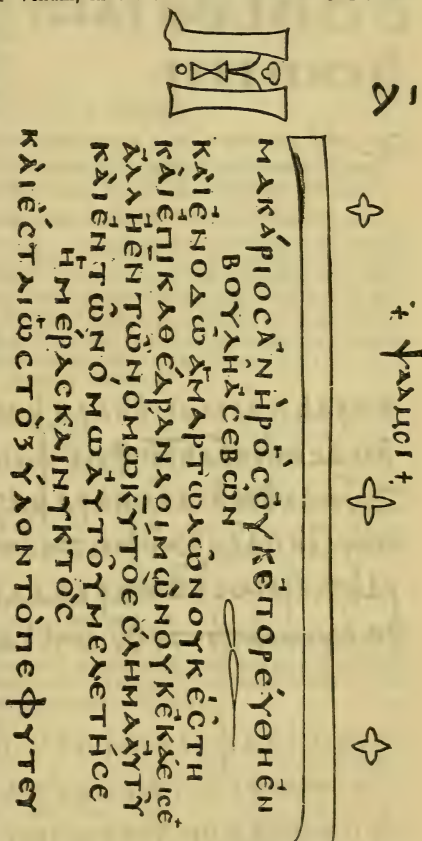 ᾱ
+ ΨΑΛΜΟΙ +
ΜΑΚΆΡΙΟCἈΝῊΡὉCΟΥ̓ΚἘΠΟΡΕΎΘΗἘΝ
ΒΟΥΛΗ͂ἈCΕΒΩ͂Ν
ΚΑῚἘΝΟΔΩ͂ἉΜΑΡΤΩΛΩ͂ΝΟΥ̓ΚἜCΤΗ
ΚΑῚἘΠΙΚΑΘΈΔΡΑΝΛΟΙΜΩ͂ΝΟΥ̓ΚἘΚΆΕΙCΕ
ἈΛΛΗἘΝΤΩ͂ΝΌΜΩΚΥΤΟΕCΛΗΜΑΑΥ̓ΤΥ͂
ΚΑῚἘΝΤΩ͂ΝΌΜΩΑΥ̓ΤΟΥ͂ΜΕΛΕΤΉCΕ
ἩΜΕΡΑCΚΑΙΝΥΚΤΌC
ΚΑῚἜCΤΑΙΩCΤῸΞΎΛΟΝΤῸΠΕΦΥΤΕΥ